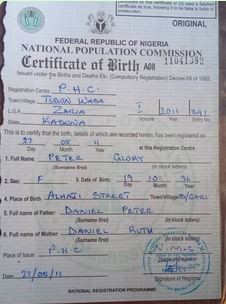 certificate or (2) uses a falsified
certificate as true, knowing it to be false is liable to
prosecution.
ORIGINAL
FEDERAL REPUBLIC OF NIGERIA
NATIONAL POPULATION COMMISSION
Certificate of Birth A08 11041082
Issued under the Births and Deaths Etc. (Compulsory Registration) Decree 69 of 1992.
Registration Centre P.H.C
Town/Village TUDUN WADA
L.G.A ZARIA 1 2011 381
State KADUNA Volume Year Entry No.
This is to certify that the birth, details of which are recorded herein, has been registered on
27 05 11 at this Registration Centre
Day Month Year
1. Full Name: PETER GLORY
(Surname first) (In block letters)
2. Sex: F 3. Date of Birth: 19 10 96
Day Month Year
4. Place of Birth ALHAJI STREET Town/Village
5. Full name of Father: DANIEL PETER
(Surname first) (In block letters)
6. Full name of Mother DANIEL RUTH
(Surname first) (In block letters)
Place of Issue: P.H.C
Name of Registrar
Date: 27/05/11 Signature of Registrar
NATIONAL REGISTRATION PROGRAMME